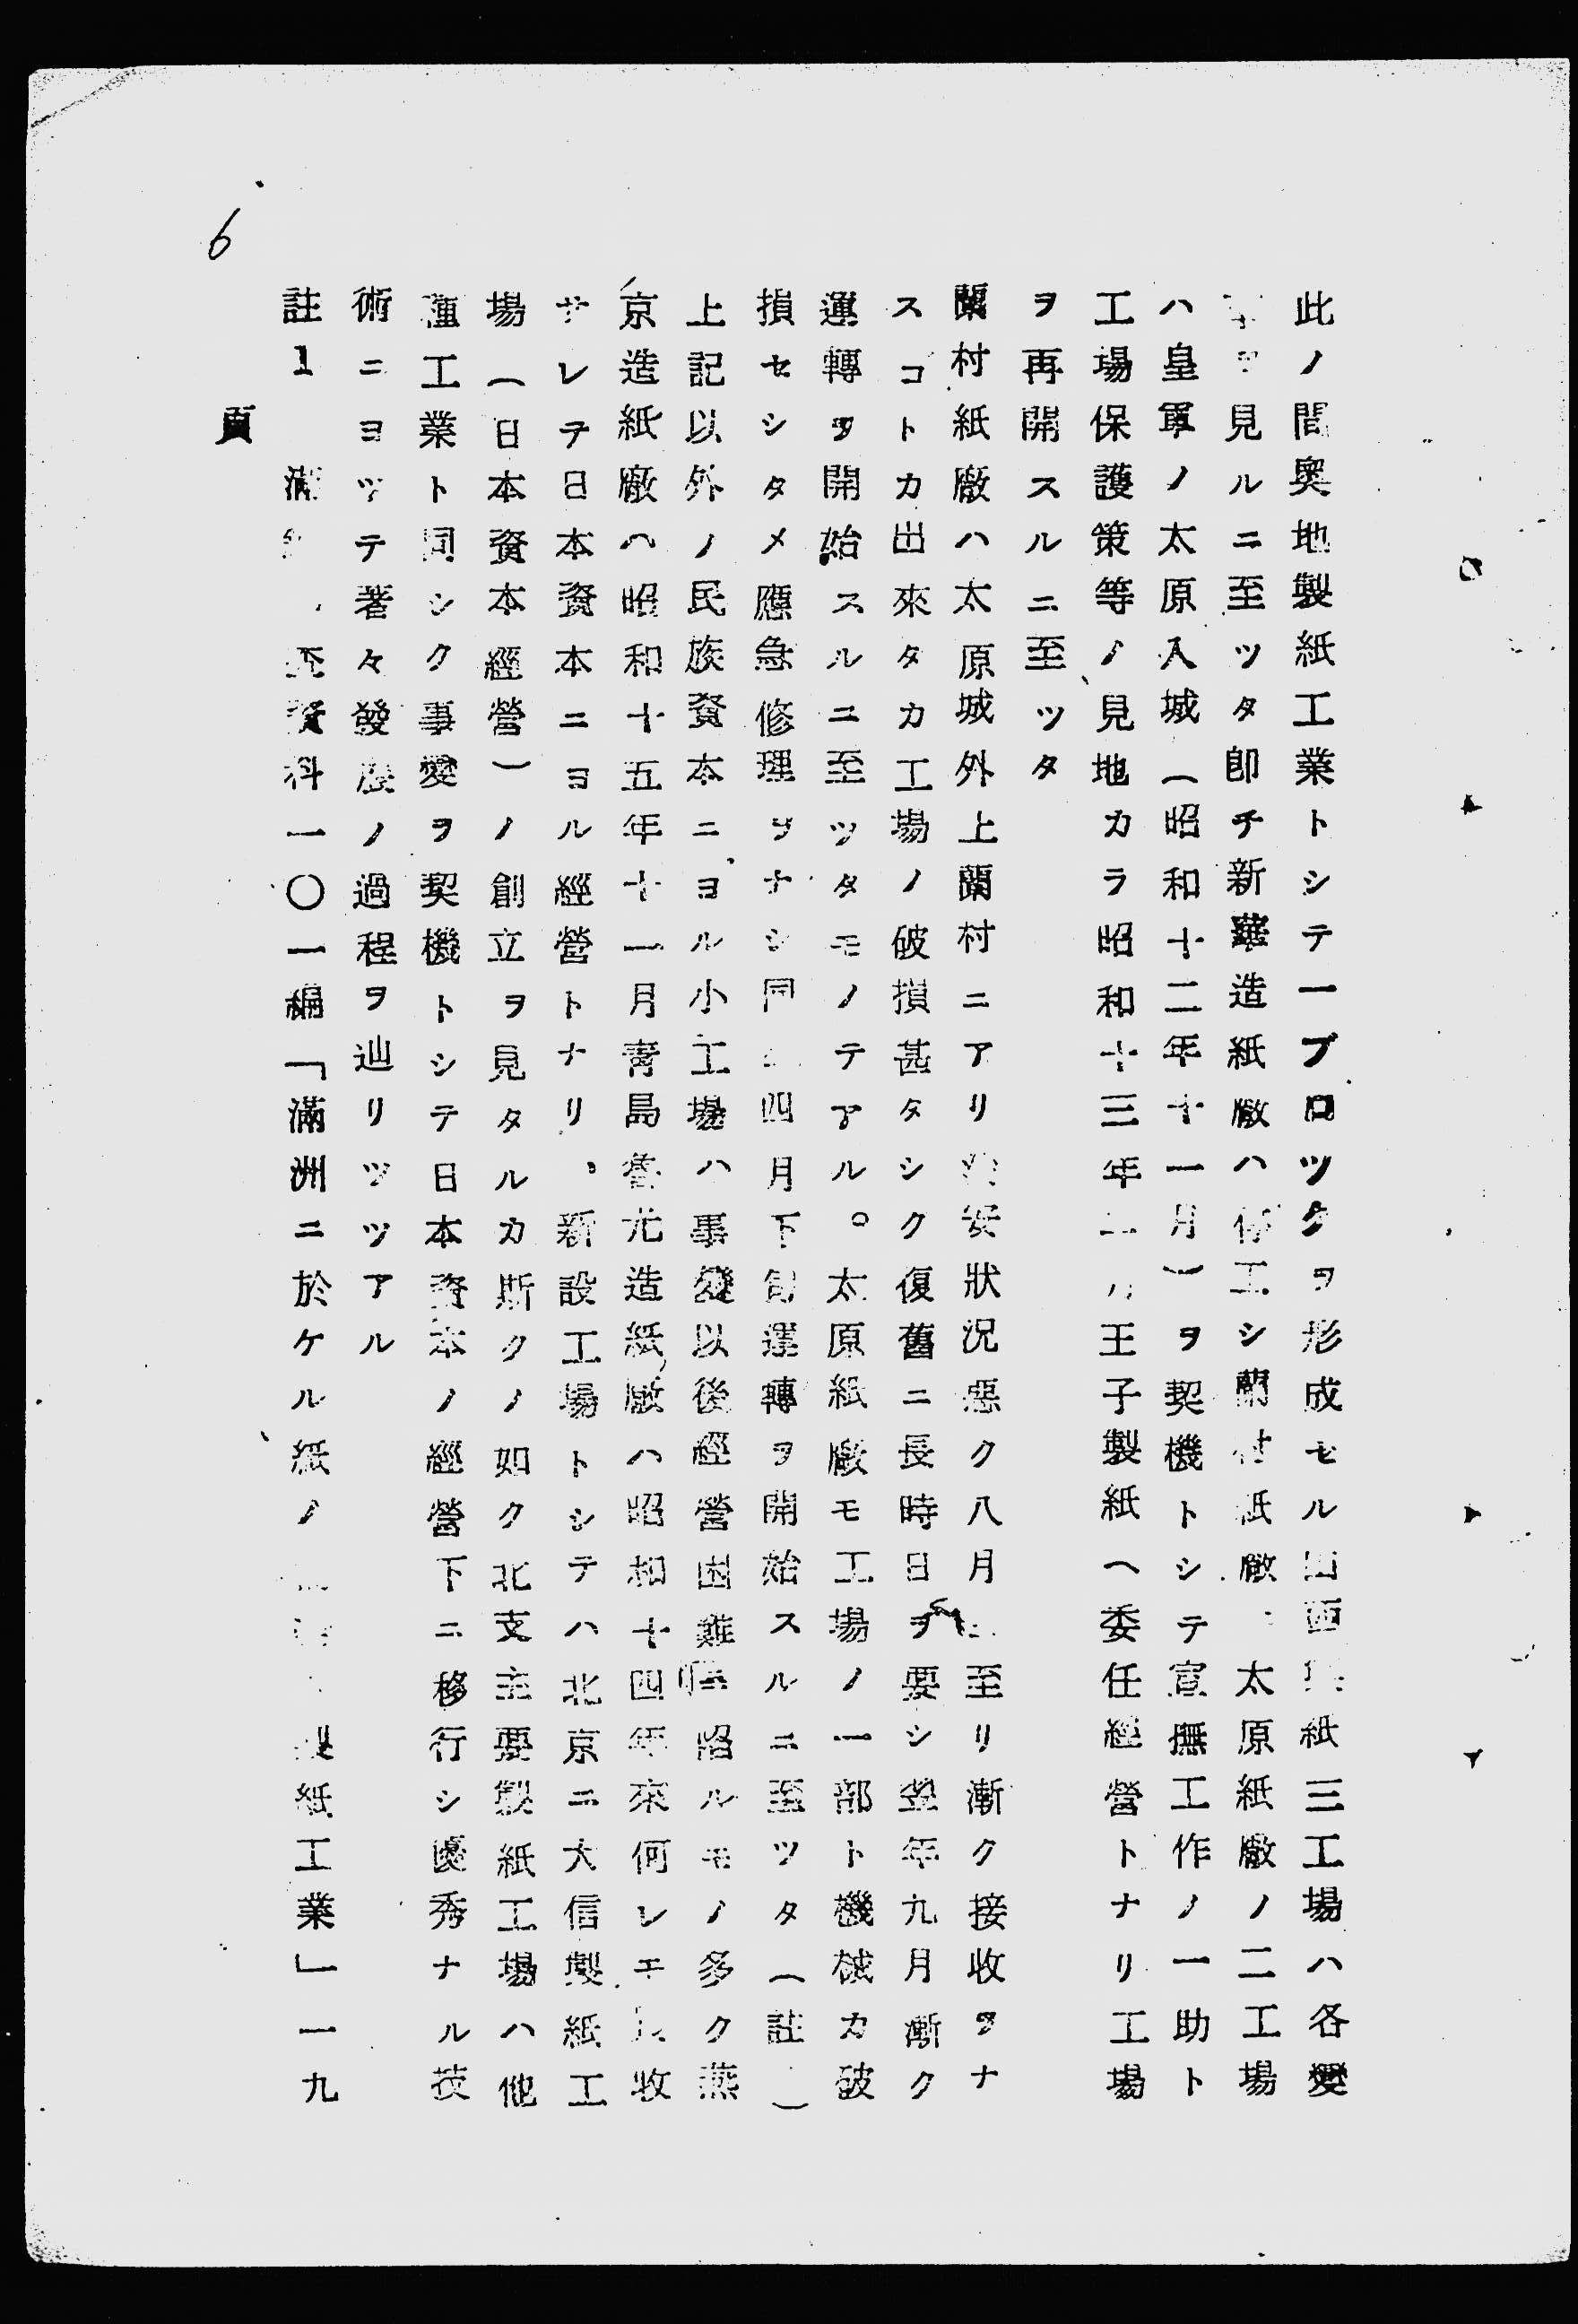 此ノ間奧地製紙工業トシテ一ブロツクヲ形成セル山西製紙三工場ハ各變
ヲ見ルニ至ツタ卽チ新華造紙廠ハ停工シ蘭村紙廠、太原紙廠ノ二工場
ハ皇軍ノ太原入城（昭和十二年十一月）ヲ契機トシテ宣撫工作ノ一助ト
工場保護策等ノ見地カラ昭和十三年二月王子製紙ヘ委任經營トナリ工場
ヲ再開スルニ至ツタ
蘭村紙廠ハ太原城外上蘭村ニアリ治安狀況惡ク八月ニ至リ漸ク接收ヲナ
スコトカ出來タカ工場ノ破損甚タシク復舊ニ長時日ヲ要シ翌年九月漸ク
運轉ヲ開始スルニ至ツタモノテアル。太原紙廠モ工場ノ一部ト機械カ破
損セシタメ應急修理ヲナシ同 四月下旬運轉ヲ開始スルニ至ツタ（註）
上記以外ノ民族資本ニヨル小工場ハ事變以後經營困難ニ陷ルモノ多ク燕
京造紙廠ハ昭和十五年十一月靑島魯光造紙廠ハ昭和十四年來何レモ 收
サレテ日本資本ニヨル經營トナリ、新設工場トシテハ北京ニ大信製紙工
場（日本資本經營）ノ創立ヲ見タルカ斯クノ如ク北支主要製紙工場ハ他
種工業ト同シク事變ヲ契機トシテ日本資本ノ經營下ニ移行シ優秀ナル技
術ニヨツテ著々發展ノ過程ヲ辿リツツアル
註1 滿 查資料一〇一編「滿洲ニ於ケル紙ノ 製紙工業」一九
頁
6